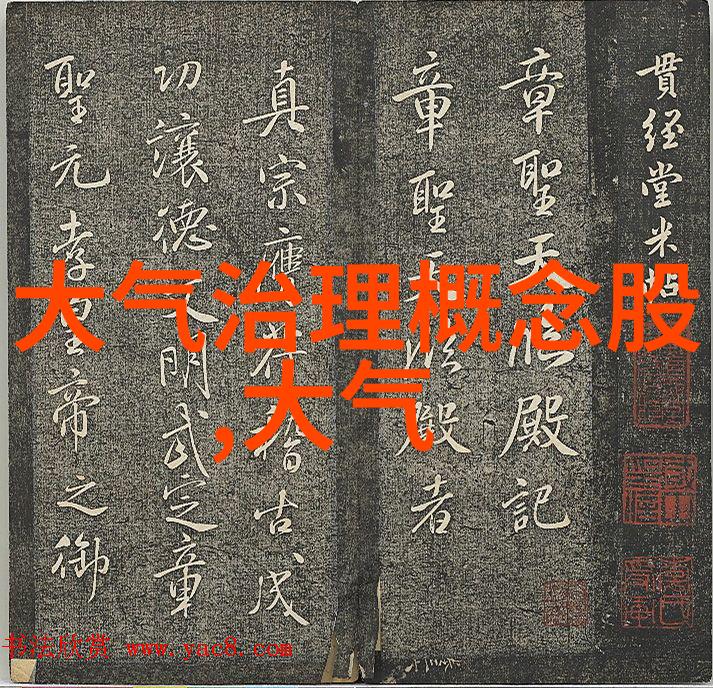 贯经堂米帖
章聖天臨殿記
章聖天臨殿者
真宗應符稽古成
功讓德文明武定章
聖元孝皇帝之御
大气治理概念股
,大气
书法欣赏 www.yac8.com